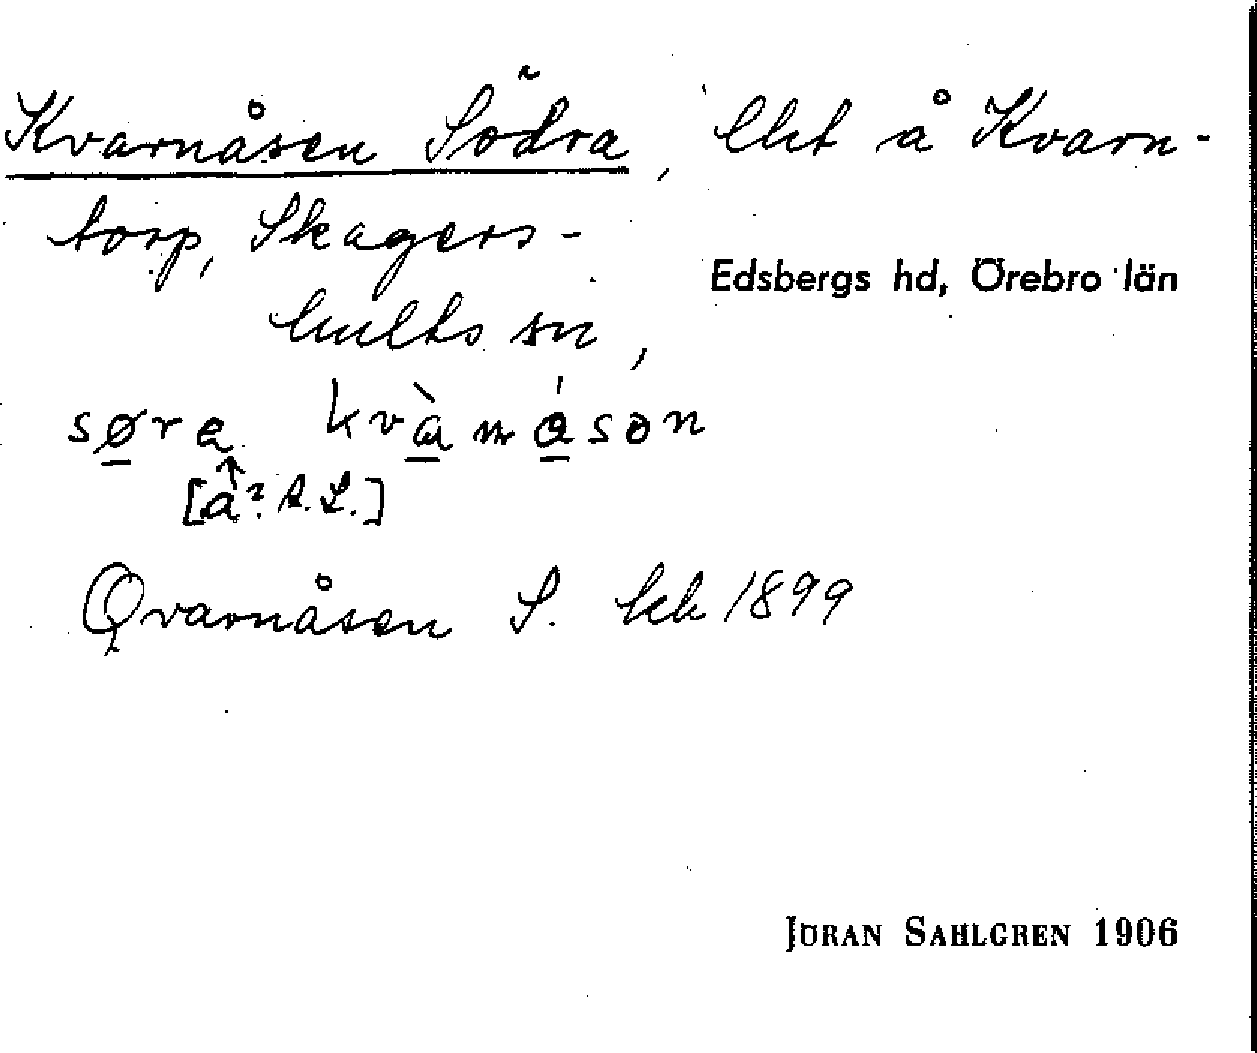 Kvarnåsen Södra, lht å Kvarn-
torp, Skagers-
hults sn,
Edsbergs hd, Örebro län
søra kvàmáson
[a? A.L.]
Qvarnåsen S. hck 1899
JÖRAN SAHLGREN 1906